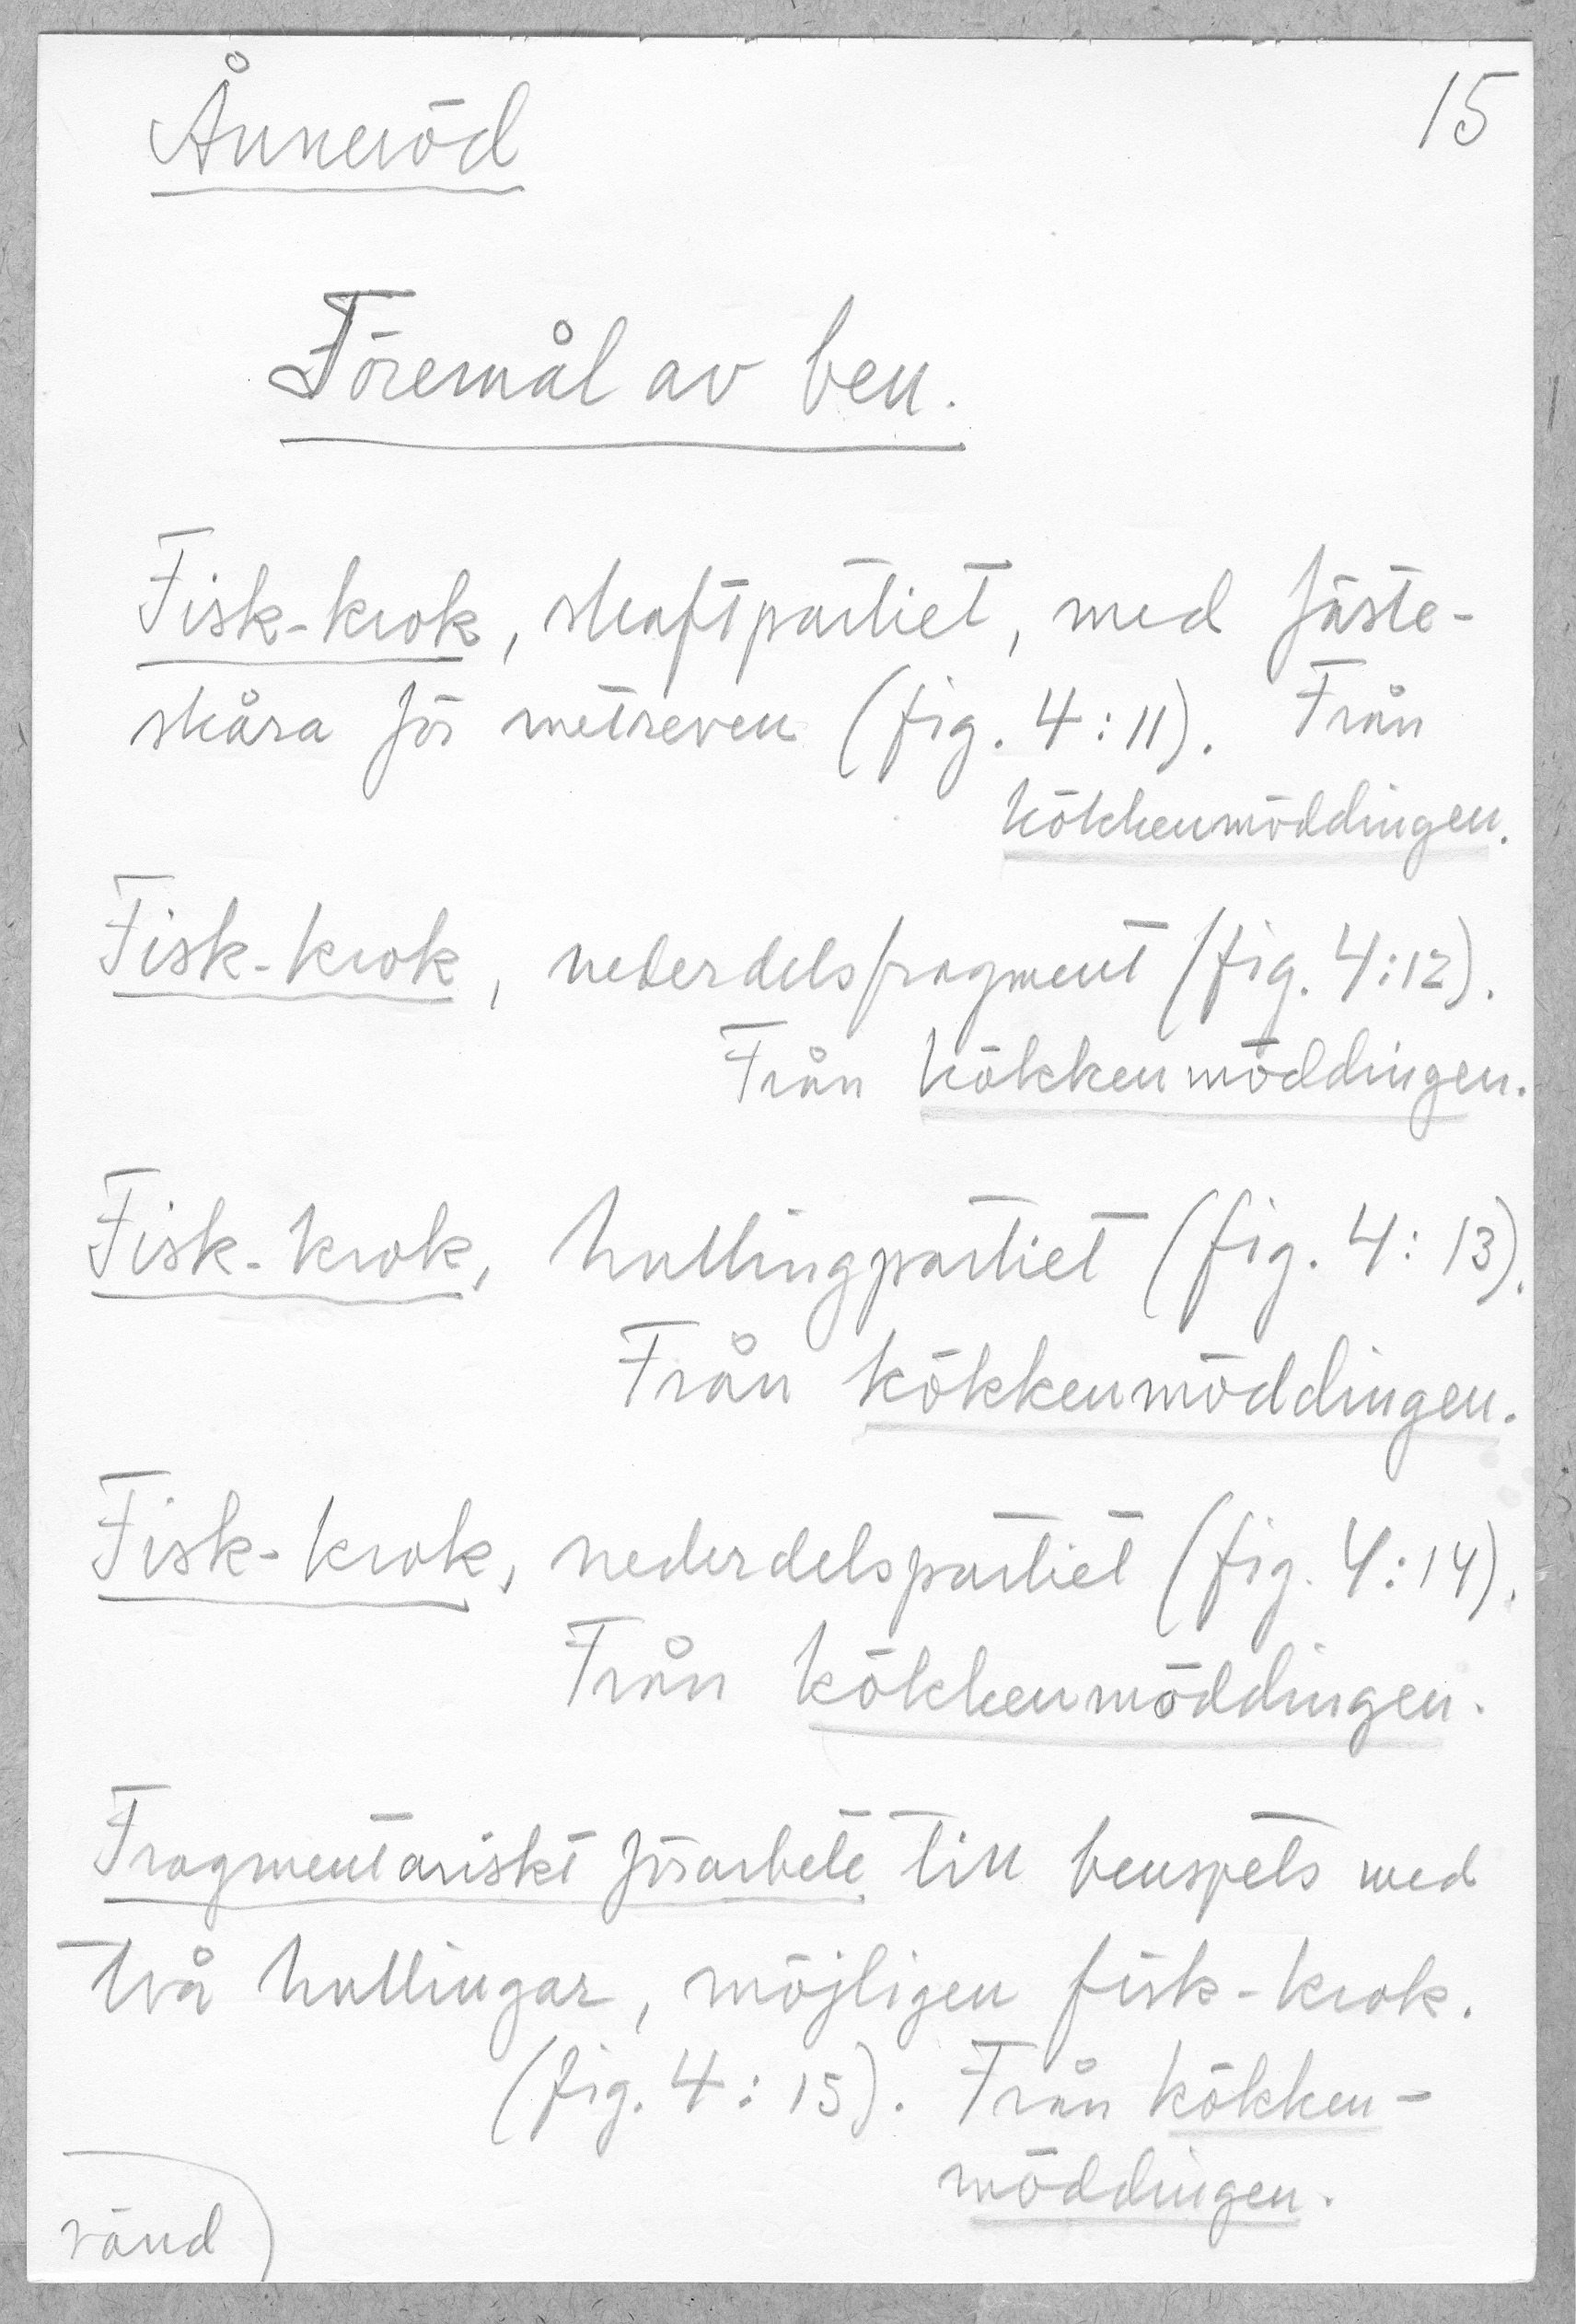 Ånneröd
15
Föremål av ben.
Fisk-krok, skaftpartiet, med fäste-
skåra för metreven (fig. 4:11). Från
kökkenmöddingen.
Fisk-krok, nederdelsfragment (fig. 4:12).
Från kökkenmöddingen.
Fisk-krok, hullingpartiet (fig. 4:13).
Från kökkenmöddingen.
Fisk-krok, nederdelspartiet (fig. 4:14).
Från kökkenmöddingen.
Fragmentariskt förarbete till benspets med
två hullingar, möjligen fisk-krok.
(fig. 4:15). Från kökken-
möddingen.
vänd